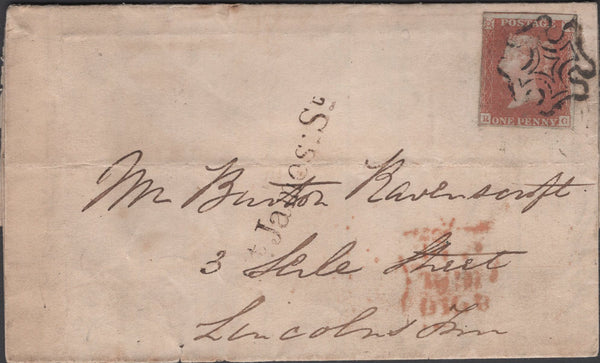 POSTAGE
R G
ONE PENNY
James: St
Mr Burton Ravenscroft
3 Serle Street
Lincolns Inn